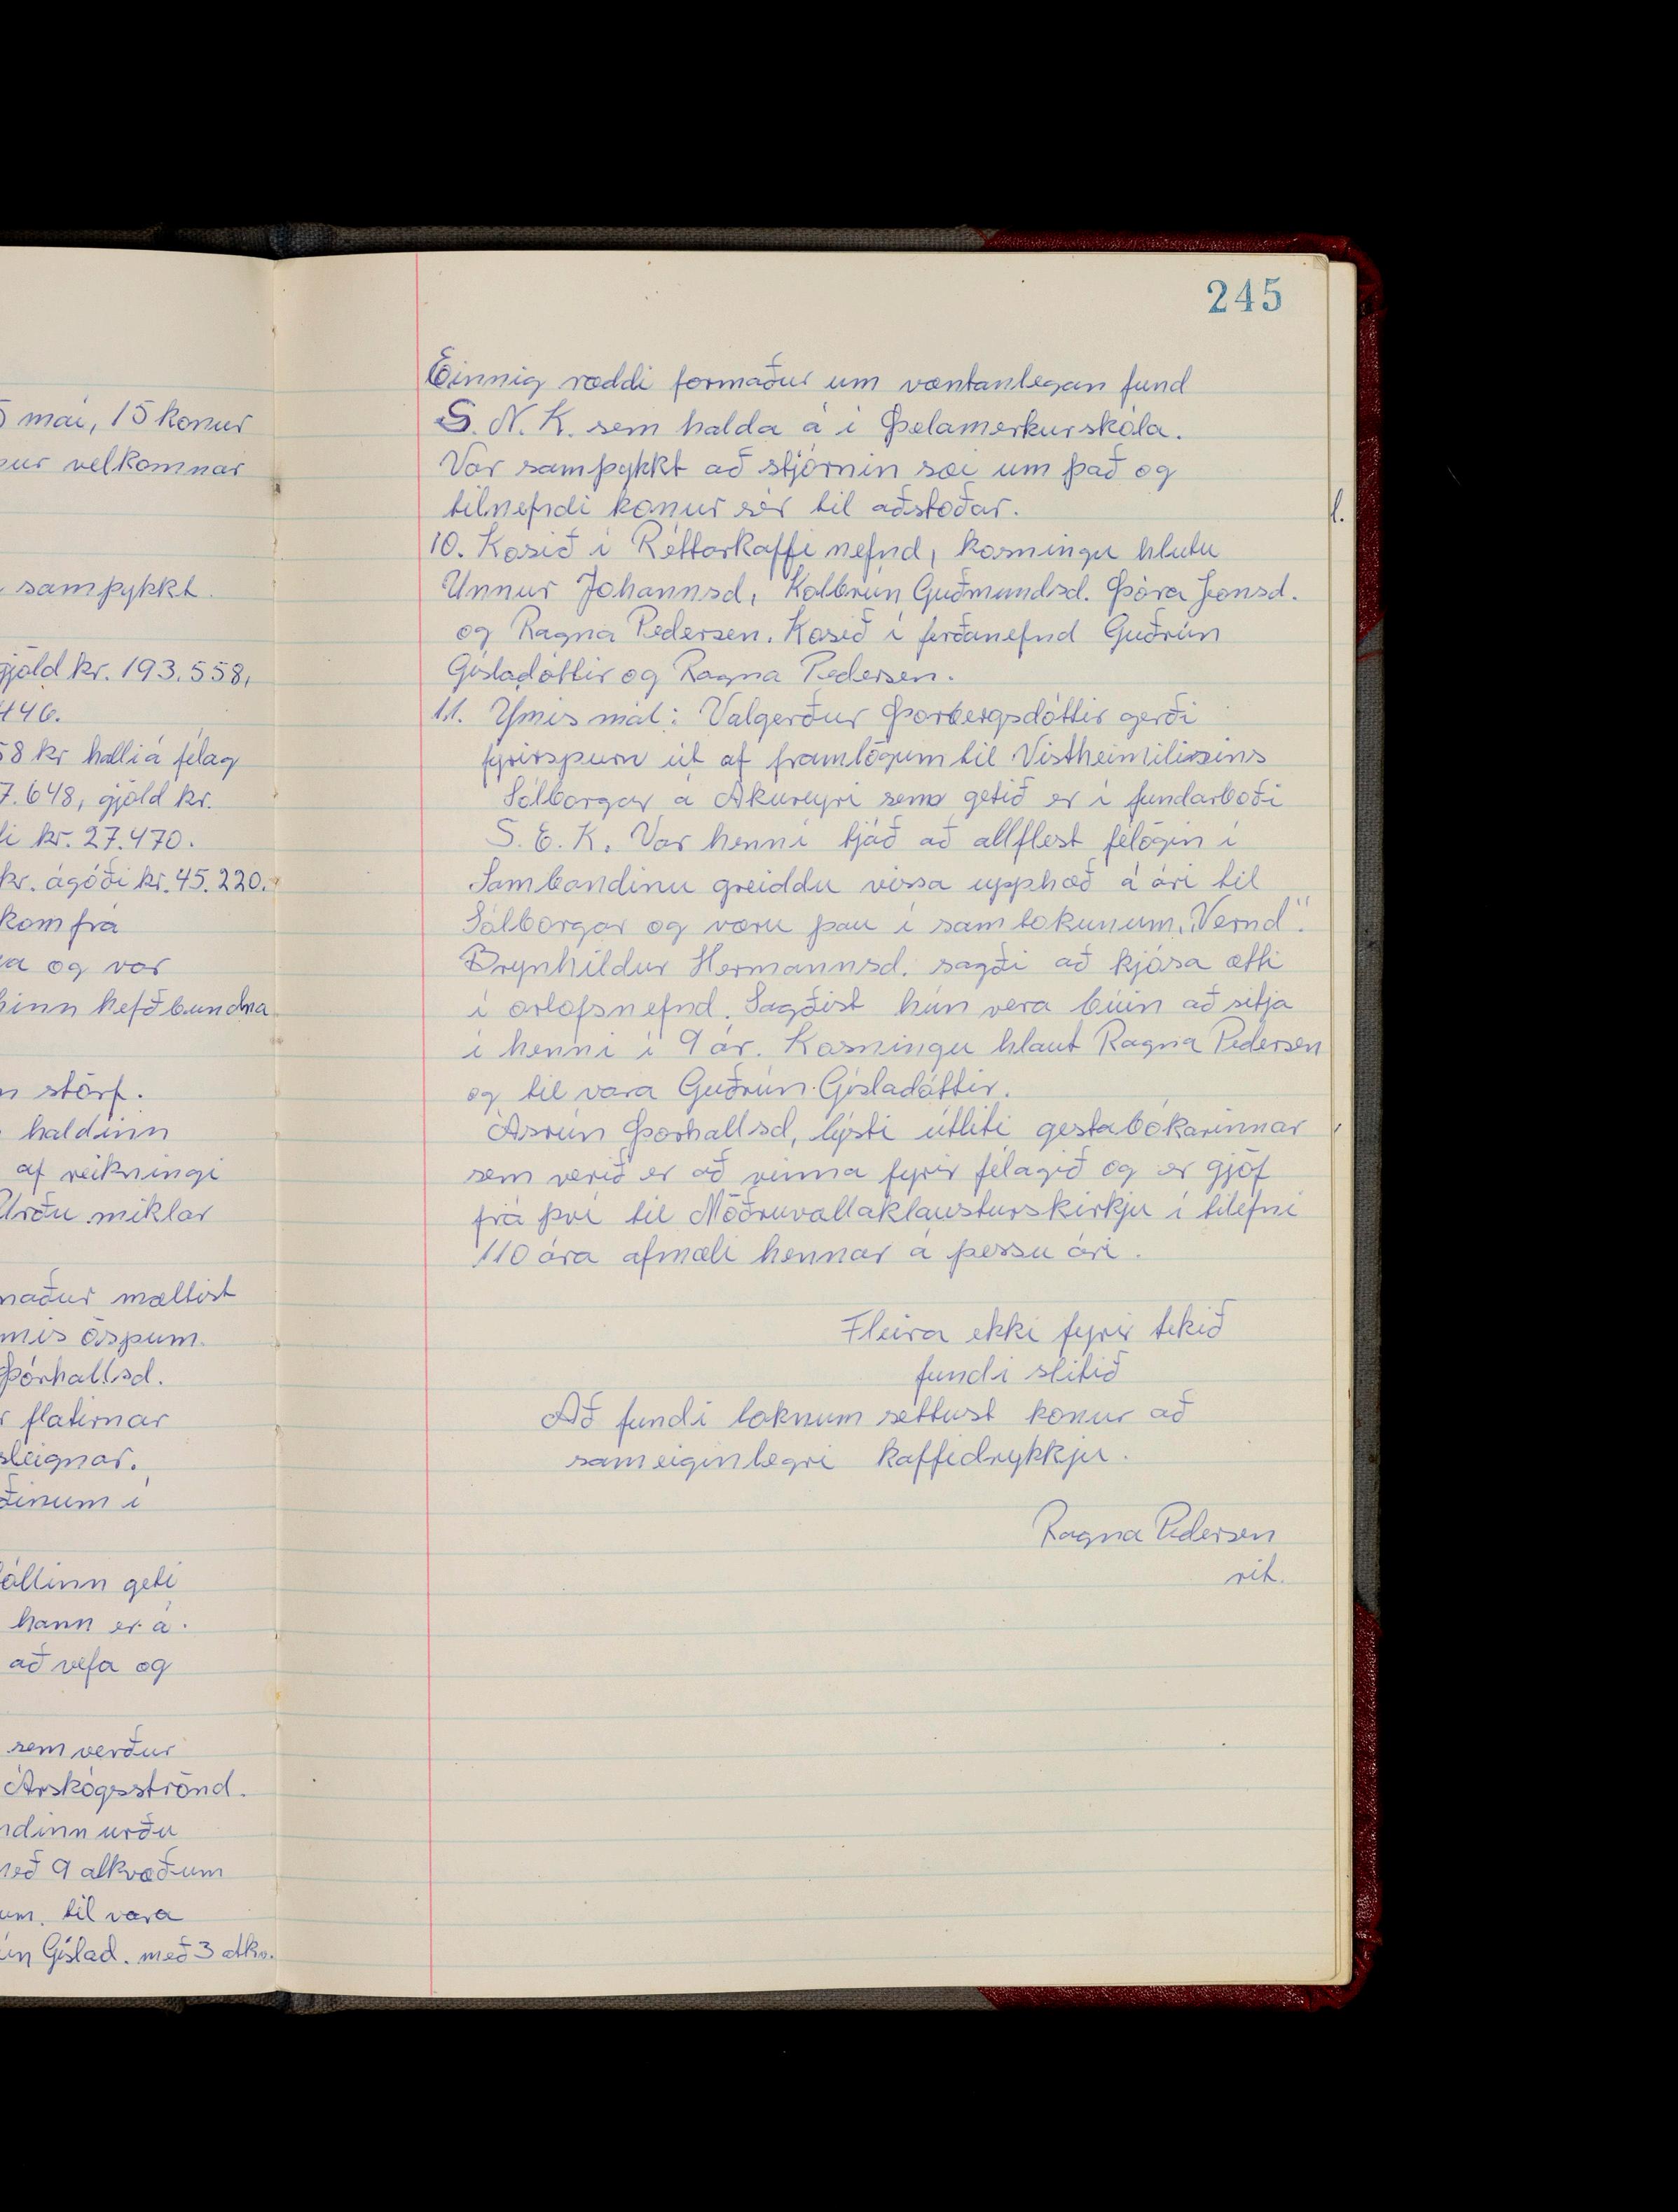 5 mai, 15 konur
velkomnar
samþykkt.
gjöld kr. 193.558,
446.
58 kr halli á félag
7.648, gjöld kr.
kr. 27.470.
kr. ágóði kr. 45.220.
kom frá
og var
hinn hefðbundna
störf.
haldinn
af reikningi
Urðu miklar
maður mæltist
öspum.
Þórhallsd.
flatirnar
sleignar.
ðinum í
geti
hann er á.
að vefa og
sem verður
Árskógsströnd.
urðu
með 9 atkvæðum
til vara
Gíslad. með 3 atkv.
245
Einnig ræddi formaður um væntanlegan fund
S. N. K. sem halda á í Þelamerkurskóla.
Var samþykkt að stjórnin sæi um það og
tilnefndi konur sér til aðstoðar.
10. Kosið í Réttarkaffi nefnd, kosningu hlutu
Unnur Jóhannsd, Kolbrún Guðmundsd. Þóra Jónsd.
og Ragna Pedersen. Kosið í ferðanefnd Guðrún
Gísladóttir og Ragna Pedersen.
11. Ymis mál: Valgerður Þorbergsdóttir gerði
fyrirspurn út af framlögum til Vistheimilisins
Sólborgar á Akureyri sem getið er í fundarboði
S. E. K. Var henni tjáð að allflest félögin í
Sambandinu greiddu vissa upphæð á ári til
Sólborgar og væru þau í samtökunum „Vernd".
Brynhildur Hermannsd. sagði að kjósa ætti
í orlofsnefnd. Sagðist hún vera búin að sitja
í henni í 9 ár. Kosningu hlaut Ragna Pedersen
og til vara Guðrún Gísladóttir.
Ásrún Þórhallsd, lýsti útliti gestabókarinnar
sem verið er að vinna fyrir félagið og er gjöf
frá því til Möðruvallaklausturskirkju í tilefni
110 ára afmæli hennar á þessu ári.
Fleira ekki fyrir tekið
fundi slitið
Að fundi loknum settust konur að
sameiginlegri kaffidrykkju.
Ragna Pedersen
rit.